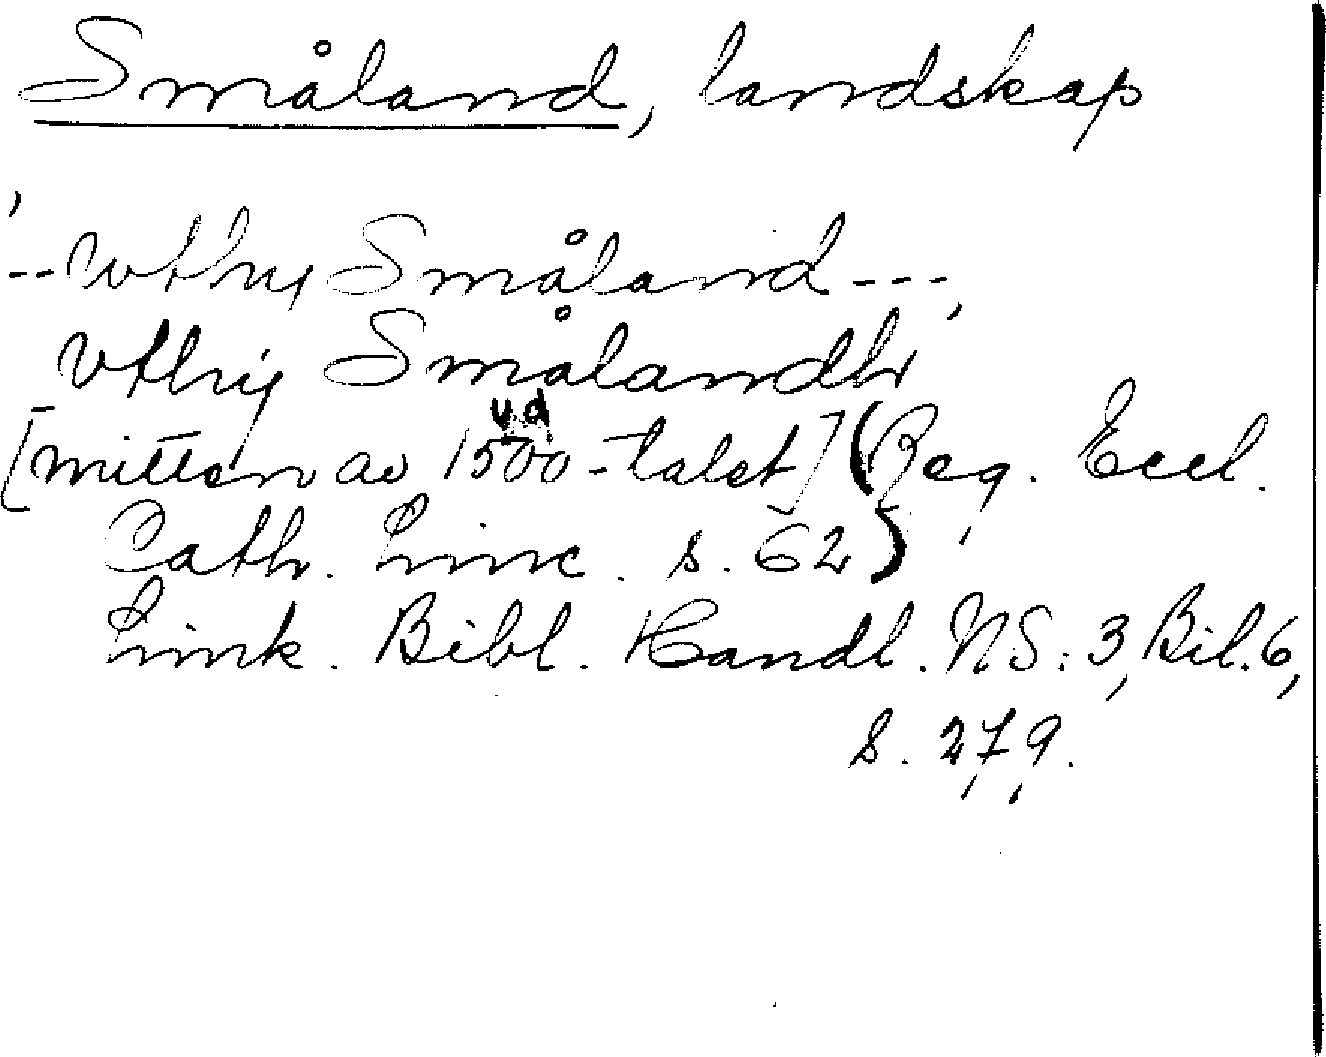 Småland, landskap
-- wthij Småland ---,
vthij Smålandh
[mitten av 1500-talet] (Reg. Eccl.
Cath. Linc. s. 62)
Link. Bibl. Handl. NS: 3, Bil. 6,
s. 279.